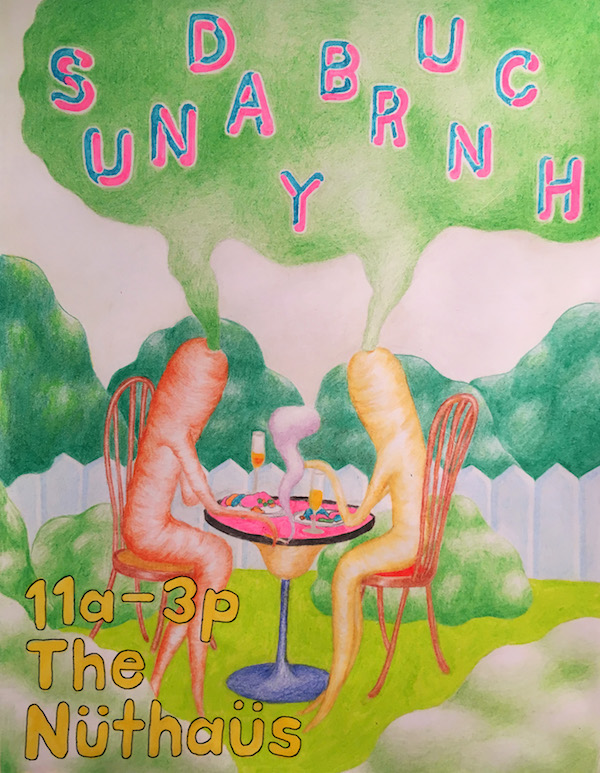 SUNDAY BRUNCH
11a-3p
The
Nüthaüs